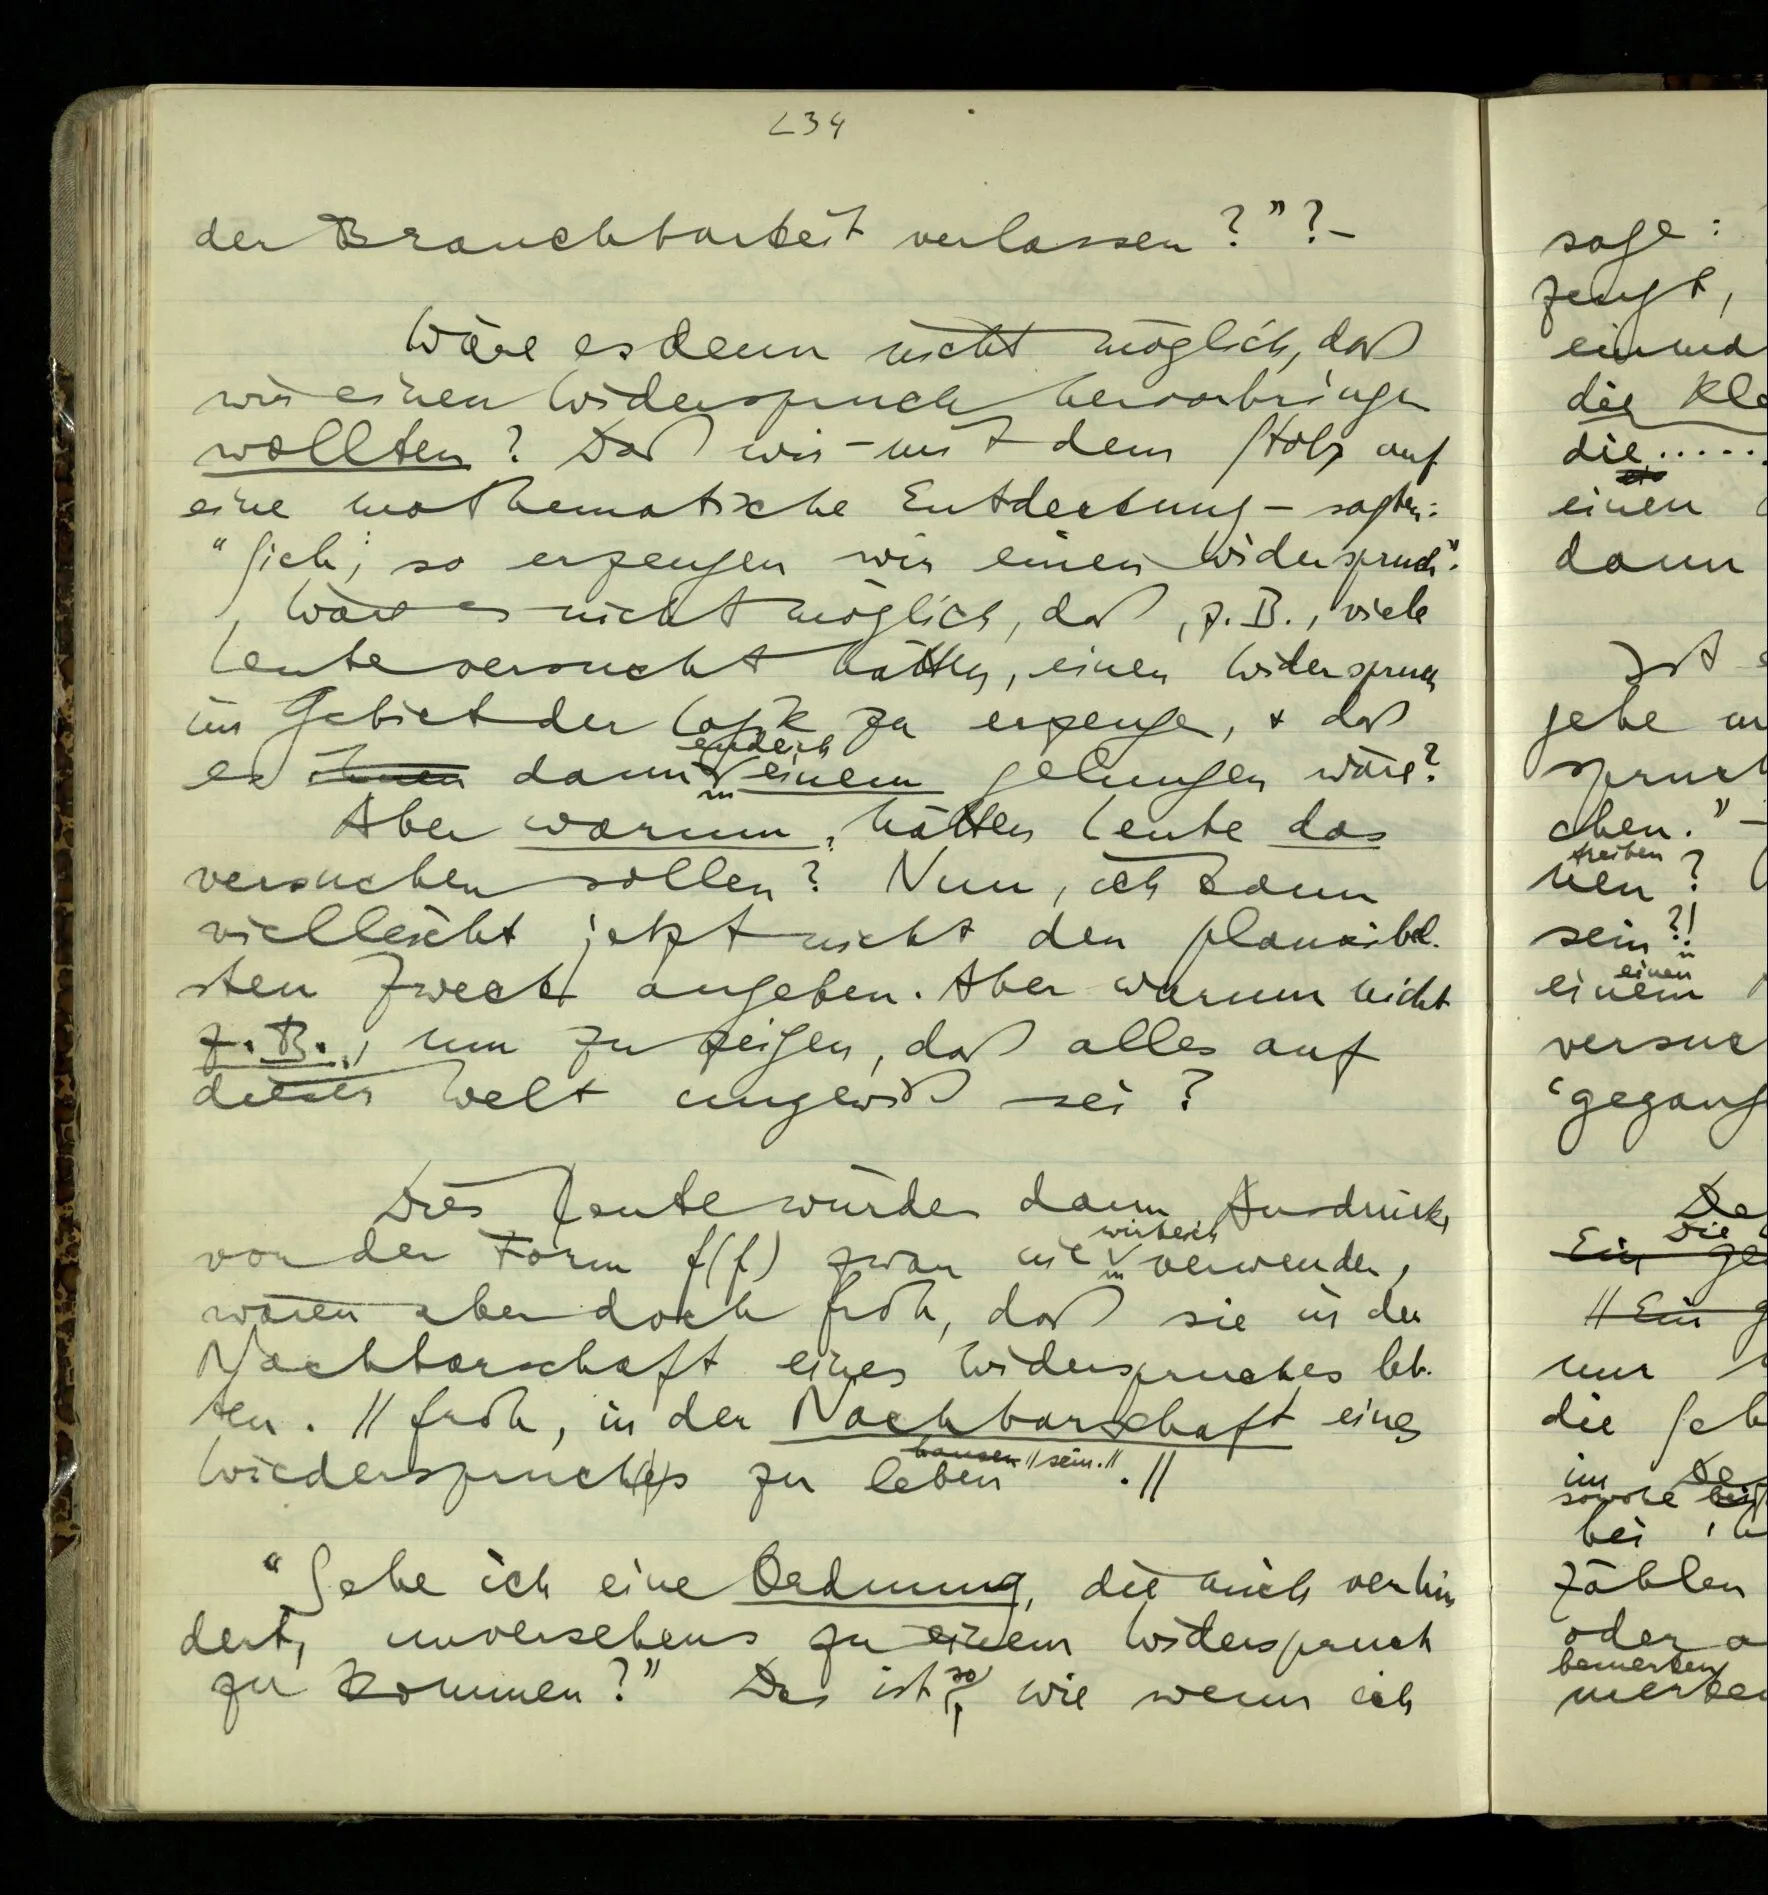 234
der Brauchbarkeit verlassen?"? –
Wäre es denn nicht möglich, daß
wir einen Widerspruch hervorbringen
wollten? Daß wir – mit dem Stolz auf
eine mathematische Entdeckung – sagten:
"Sieh, so erzeugen wir einen Widerspruch".
Wäre es nicht möglich, daß, z.B., viele
Leute versucht hätten, einen Widerspruch
im Gebiet der Logik zu erzeugen, & daß
endlich
es ihnen dann einem gelungen wäre?
Aber warum hätten Leute das
versuchen sollen? Nun, ich kann
vielleicht jetzt nicht den plausibel-
sten Zweck angeben. Aber warum nicht
z.B., um zu zeigen, daß alles auf
dieser Welt ungewiß sei?
Diese Leute würden dann Ausdrücke
wirklich
von der Form f(f) zwar nie verwenden,
wären aber doch froh, daß sie in der
Nachbarschaft eines Widerspruches leb-
ten. // froh, in der Nachbarschaft eines
hausen // sein. //
Wiederspruch(e)s zu leben. //
"Sehe ich eine Ordnung, die mich verhin
dert, unversehens zu einem Widerspruch
so
zu kommen?" Das ist, wie wenn ich
sage:
zeugt,
einma
die Kla
die.....
einen
dann
Ist e
gehe
spruch
chen." –
treiben
nen?
sein?!
einen
einem
versuc
'gegang
De
Die
Ein ge
// Ein g
nur
die Geb
im De
sowohl bei
bei
zählen
oder a
bemerken
merken